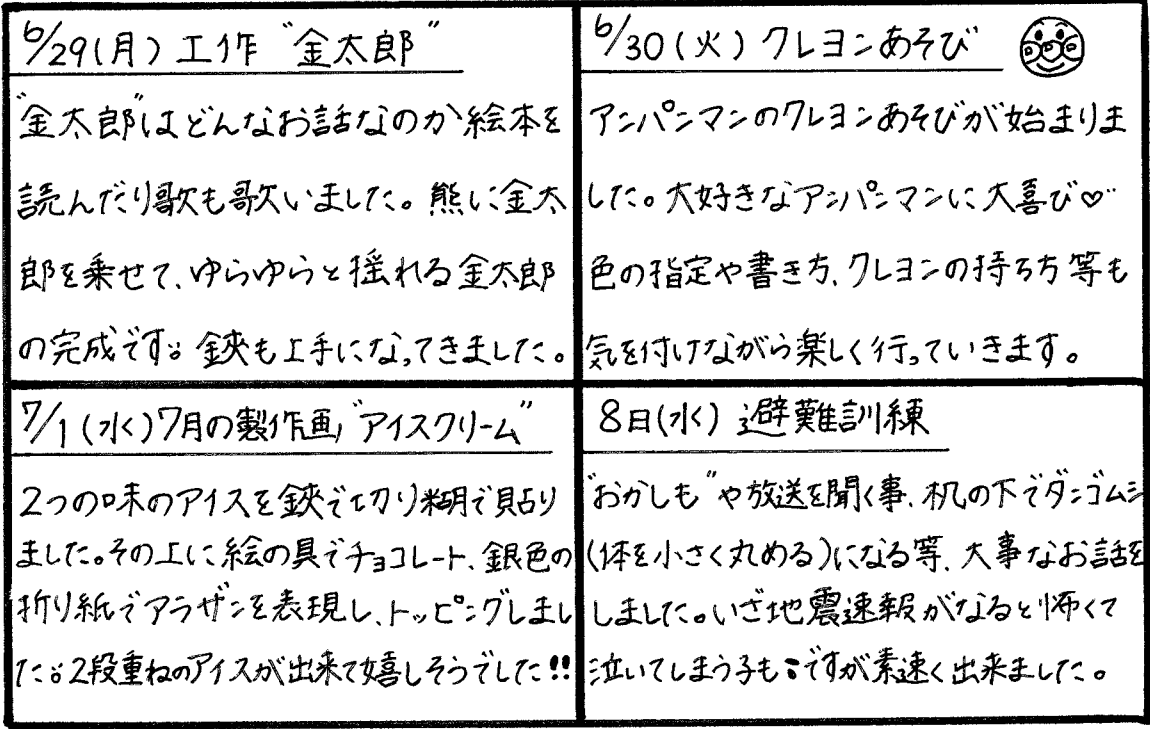 6/29(月) 工作 "金太郎"
"金太郎"はどんなお話なのか絵本を
読んだり歌も歌いました。熊に金太
郎を乗せて、ゆらゆらと揺れる金太郎
の完成です。鋏も上手になってきました。
6/30(火) クレヨンあそび
アンパンマンのクレヨンあそびが始まりま
した。大好きなアンパンマンに大喜び♡
色の指定や書き方、クレヨンの持ち方等も
気を付けながら楽しく行っていきます。
7/1(水)7月の製作画"アイスクリーム"
2つの味のアイスを鋏で切り糊で貼り
ました。その上に絵の具でチョコレート、銀色の
折り紙でアラザンを表現し、トッピングしまし
た。2段重ねのアイスが出来て嬉しそうでした!!
8日(水) 避難訓練
"おかしも"や放送を聞く事、机の下でダンゴムシ
(体を小さく丸める)になる等、大事なお話を
しました。いざ地震速報がなると怖くて
泣いてしまう子も:ですが素速く出来ました。